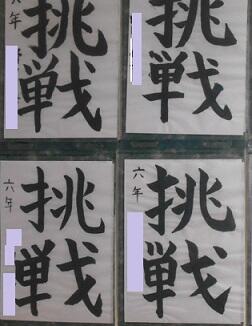 挑戦
六年
挑戦
挑戦
六年
挑戦
六年